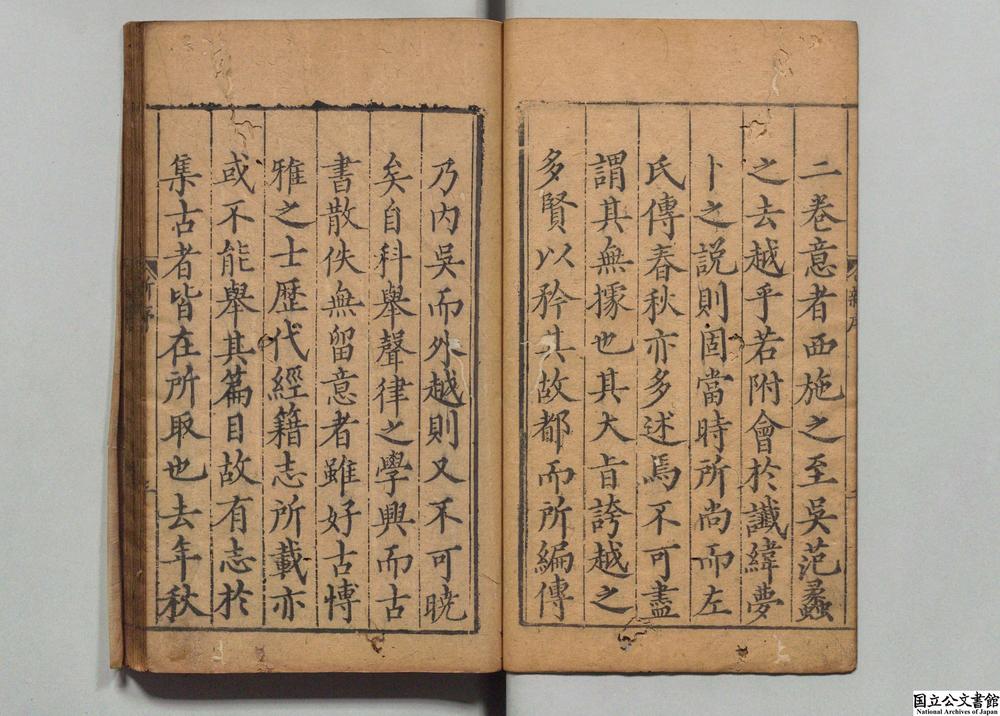 二卷意者西施之至吳范蠡
之去越乎若附會於讖緯夢
卜之説則固當時所尚而左
氏傳春秋亦多述焉不可盡
謂其無據也其大旨誇越之
多賢以矜其故都而所編傳
乃内吳而外越則又不可曉
矣自科舉聲律之學興而古
書散佚無留意者雖好古博
雅之士歷代經籍志所載亦
或不能舉其篇目故有志於
集古者皆在所取也去年秋
国立公文書館
National Archives of Japan